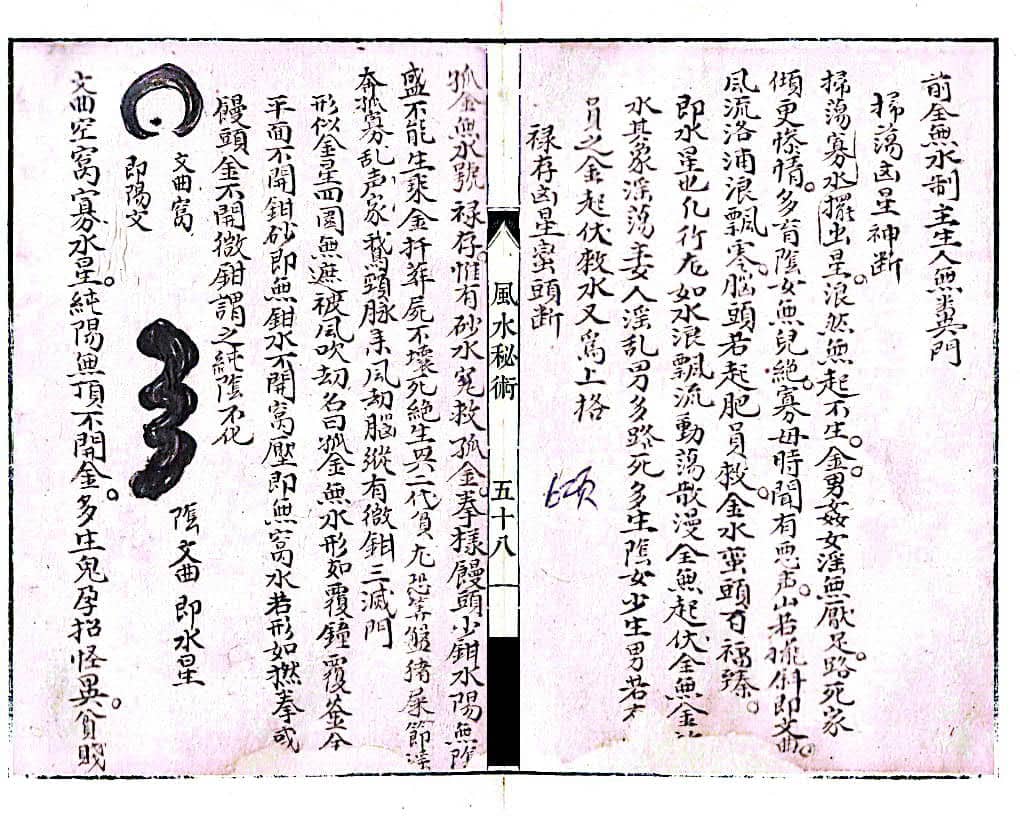 前全無水制主生人無義門
掃蕩凶星神断
掃蕩寡水擺出星。浪然無起不生。金男姦女淫無厭足。路死家
傾更慘情。多育陰女無兒絕寡母時聞有悪声。山若斜即文曲。
風流洛浦浪飄零。腦頭若起肥員救金水蛮頭百福臻。
即水星也化行九如水浪飄流動蕩散漫全無起伏全無金
水其象淫蕩主女人淫乱男多路死多生陰女少生男若有
員之金起伏救水又為上格
禄存凶星蛮頭断
風水秘術
五十八
孤金無水號禄存。惟有砂水冤救孤金。拳様饅頭少鉗水陽無陰
盛不能生乘金扦葬屍不壊死絕生異二代貧九恐葬盤猪屎節
奔孤寡乱声家鵞頭脉来風劫腦縱有微鉗三滅門
形似金星四圍無遮被風吹劫名曰孤金無水形如覆鐘覆釜全
平面不開鉗砂即無鉗水不開窩壓即無窩水若形如撚拳或
饅頭金不開微鉗謂之純陰不化
文曲窩
即陽文
陰文曲即水星
文曲空窩寡水星。純陽無頂不開金。多生鬼孕招怪異。貧賤